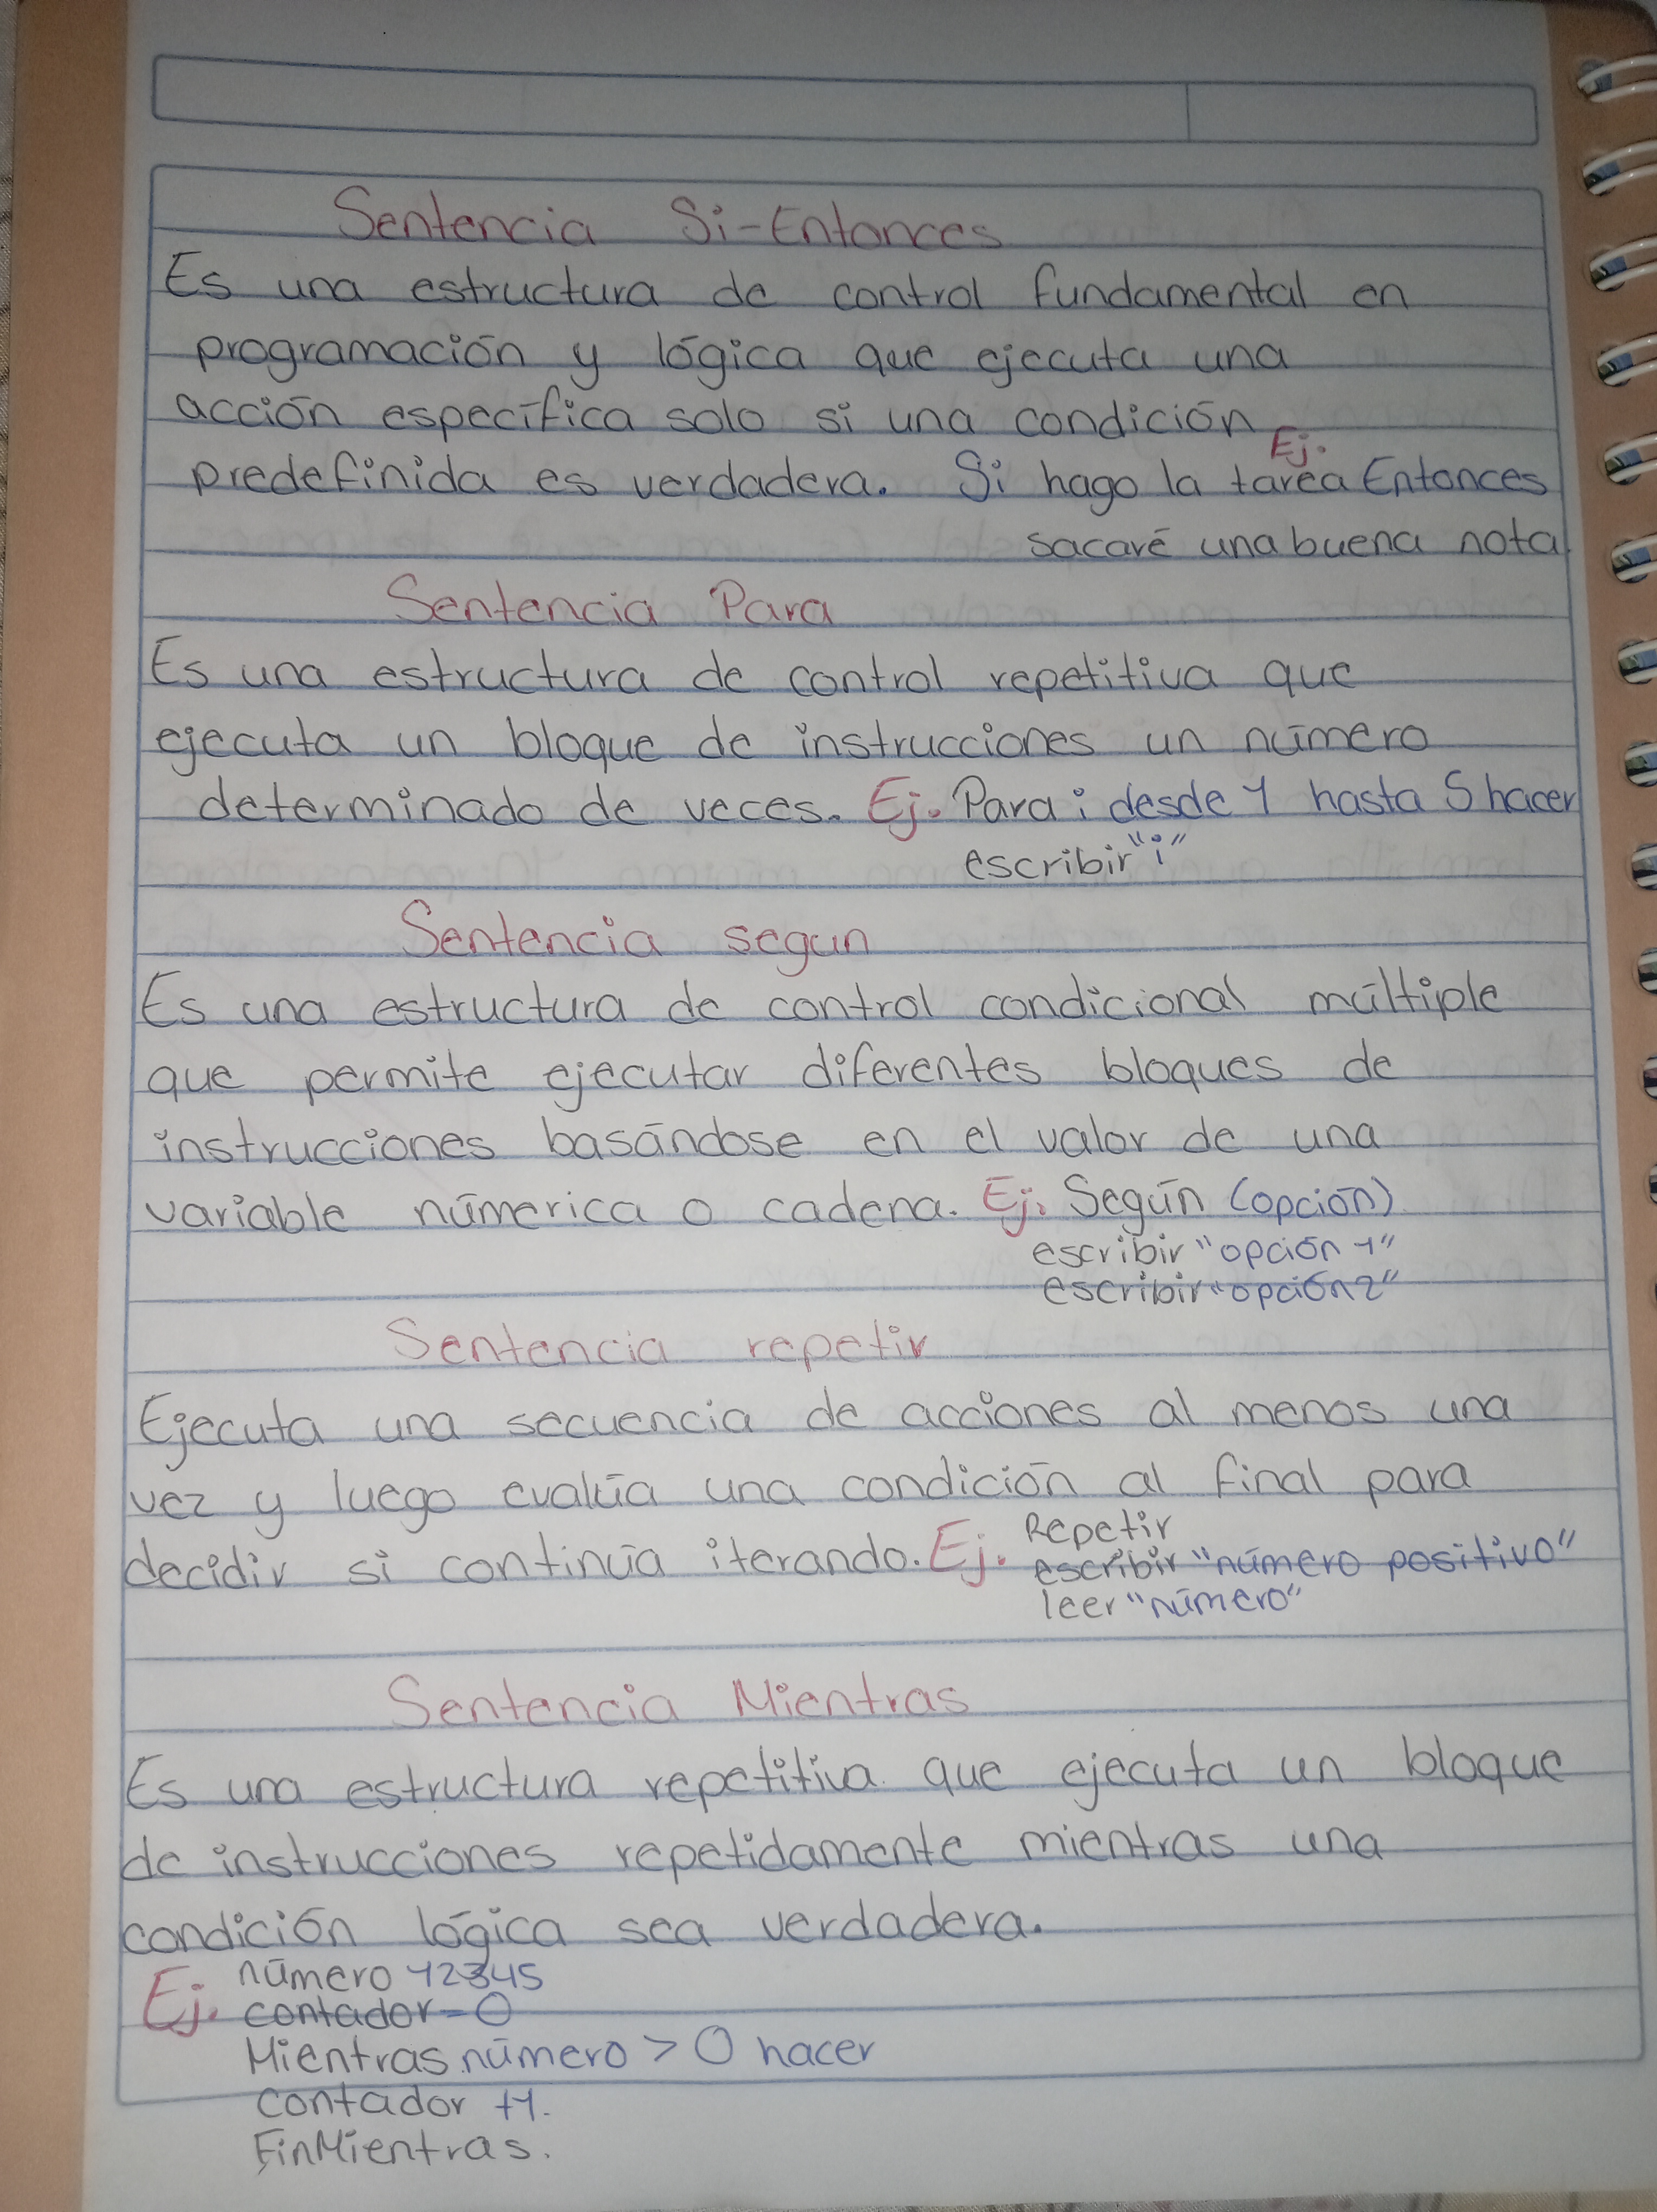 Sentencia Si-Entonces
Es una estructura de control fundamental en
programación y lógica que ejecuta una
acción específica solo si una condición
predefinida es verdadera. Ej. Si hago la tarea Entonces
sacaré una buena nota
Sentencia Para
Es una estructura de control repetitiva que
ejecuta un bloque de instrucciones un número
determinado de veces. Ej. Para i desde 1 hasta 5 hacer
escribir "i"
Sentencia segun
Es una estructura de control condicional múltiple
que permite ejecutar diferentes bloques de
instrucciones basándose en el valor de una
variable númerica o cadena. Ej. Según (opción)
escribir "opción 1"
escribir "opción 2"
Sentencia repetir
Ejecuta una secuencia de acciones al menos una
vez y luego evalúa una condición al final para
decidir si continúa iterando. Ej. Repetir
escribir "número positivo"
leer "número"
Sentencia Mientras
Es una estructura repetitiva que ejecuta un bloque
de instrucciones repetidamente mientras una
condición lógica sea verdadera.
Ej. número 12345
contador = 0
Mientras número > 0 hacer
contador +1.
FinMientras.